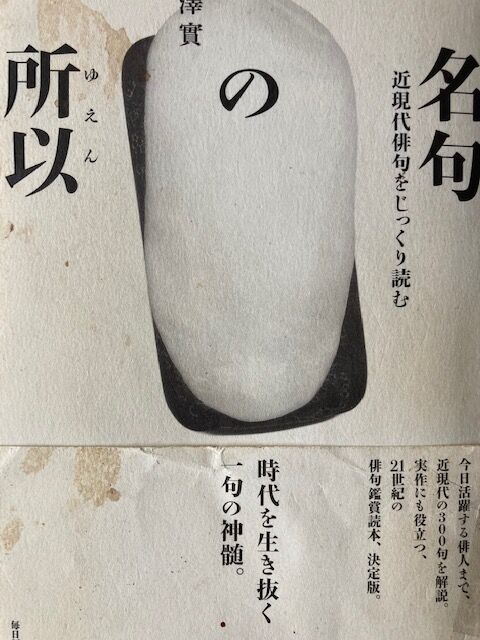 名句
の
所以
ゆえん
近現代俳句をじっくり読む
澤實
今日活躍する俳人まで、
近現代の300句を解説。
実作にも役立つ、
21世紀の
俳句鑑賞読本、決定版。
時代を生き抜く
一句の神髄。
毎日